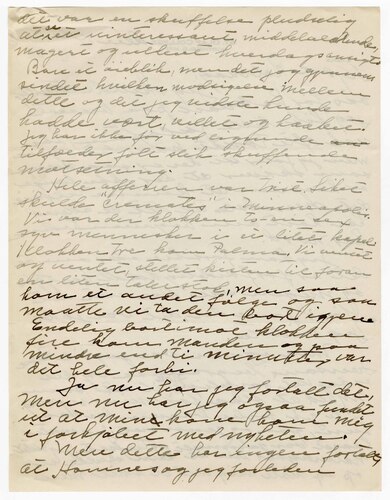 det var en skuffelse pludselig
at et uinteressant middelaldrende,
magert og hverdagsansigt
Bare et øieblik, men det jog gjennem
sindet hvilken modsigelse mellem
dette og det jeg vidste hende
hadde været, villet og tænkt.
Jeg har ikke før ved lignende
tilfælder følt slik skuffende
motsetning.
Hele affæren var trist. Liket
skulde "cremates" i Minneapolis.
Vi var der klokken to en sex
syv mennesker i et litet kapel
Klokken tre kom Palma. Vi ventet
og ventet, stellet kisten til foran
en liten talerstol, men saa
kom et andet følge og saa
maatte vi ta den bort igjen
Endelig bort imot klokken
fire kom manden og paa
mindre end ti minutter, var
det hele forbi.
Ja nu har jeg fortalt det,
men nu har jeg ogsaa fundet
ut at kom mig
i forkjøbet med nyheten.
Men dette har ingen fortalt,
at Hannes og jeg forleden